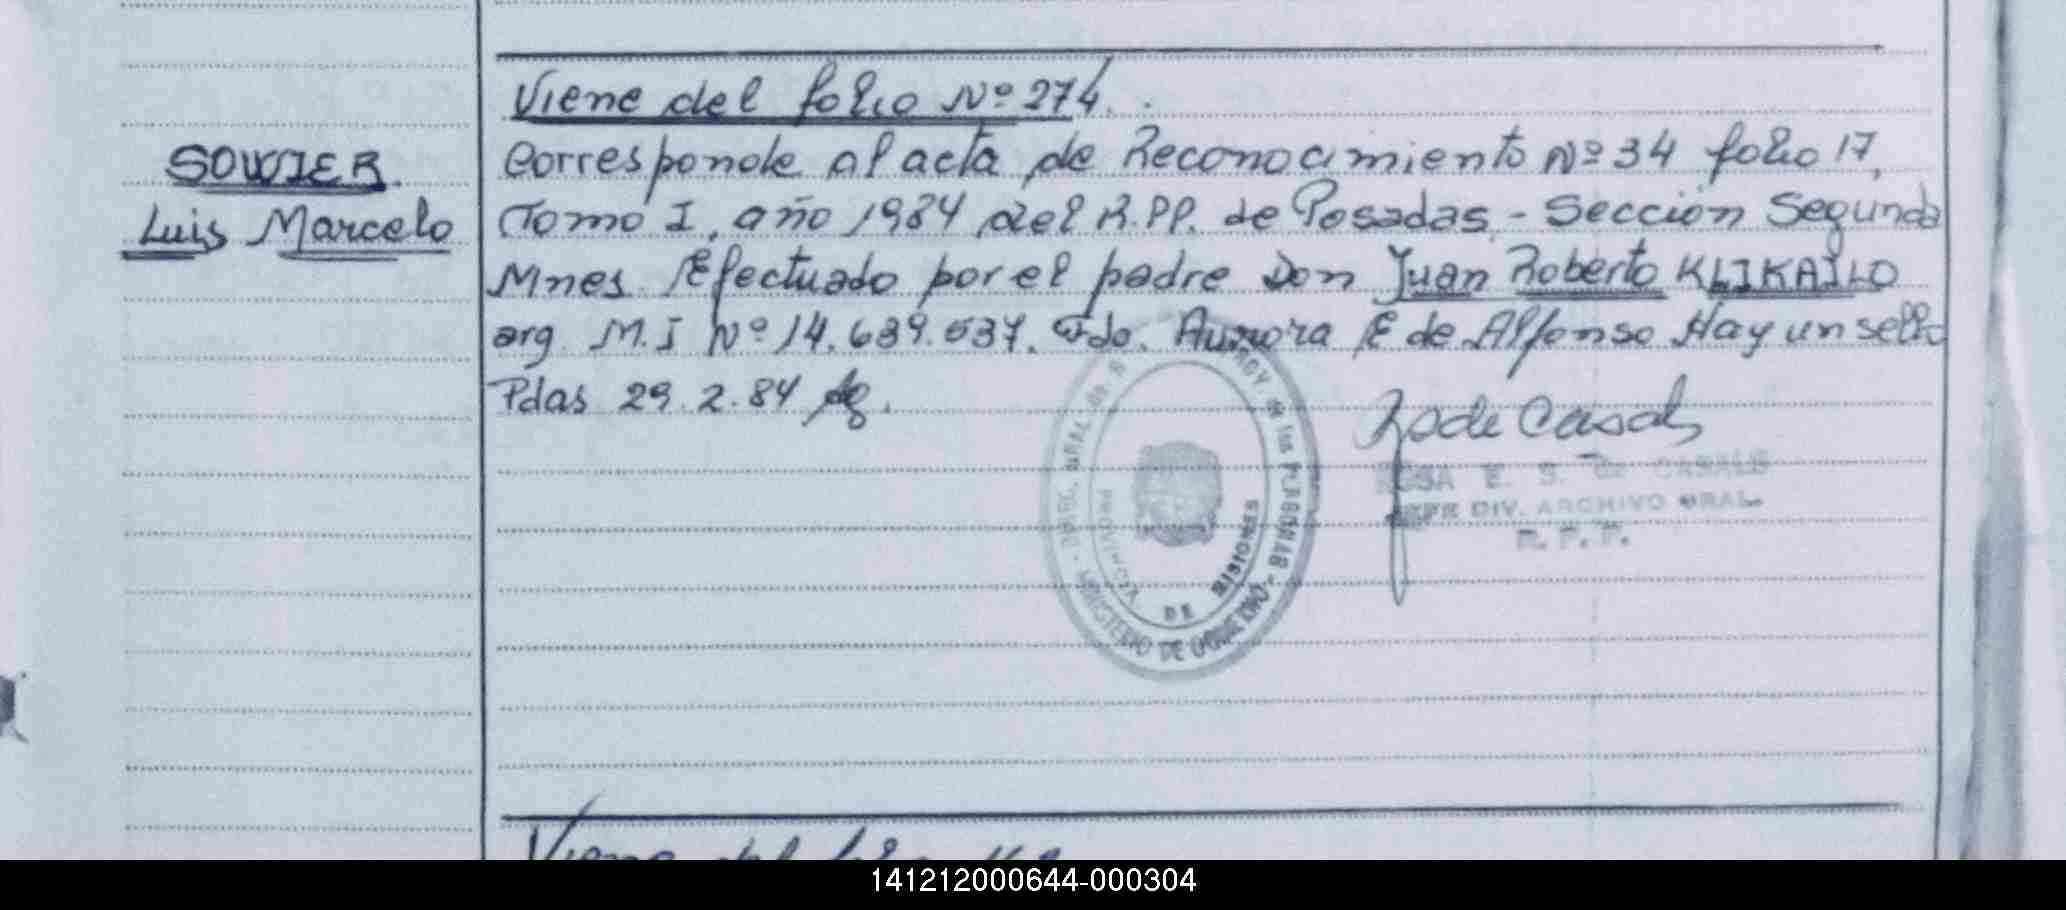 Viene del folio Nº 274.
SOWIER
Luis Marcelo
Corresponde al acta de Reconocimiento Nº 34 folio 17,
Tomo I, año 1984 del R.PP. de Posadas - Sección Segunda
Mnes. Efectuado por el padre Don Juan Roberto KLIKAILO
arg. M.I Nº 14.639.537. Fdo. Aurora E de Alfonso Hay un sello
Pdas 29.2.84
R de Casals
ROSA E. S. de CASALS
JEFE DIV. ARCHIVO GRAL.
R. P. P.
PROVINCIA DE MISIONES
MINISTERIO DE GOBIERNO
de las PERSONAS
Viene del folio Nº
141212000644-000304